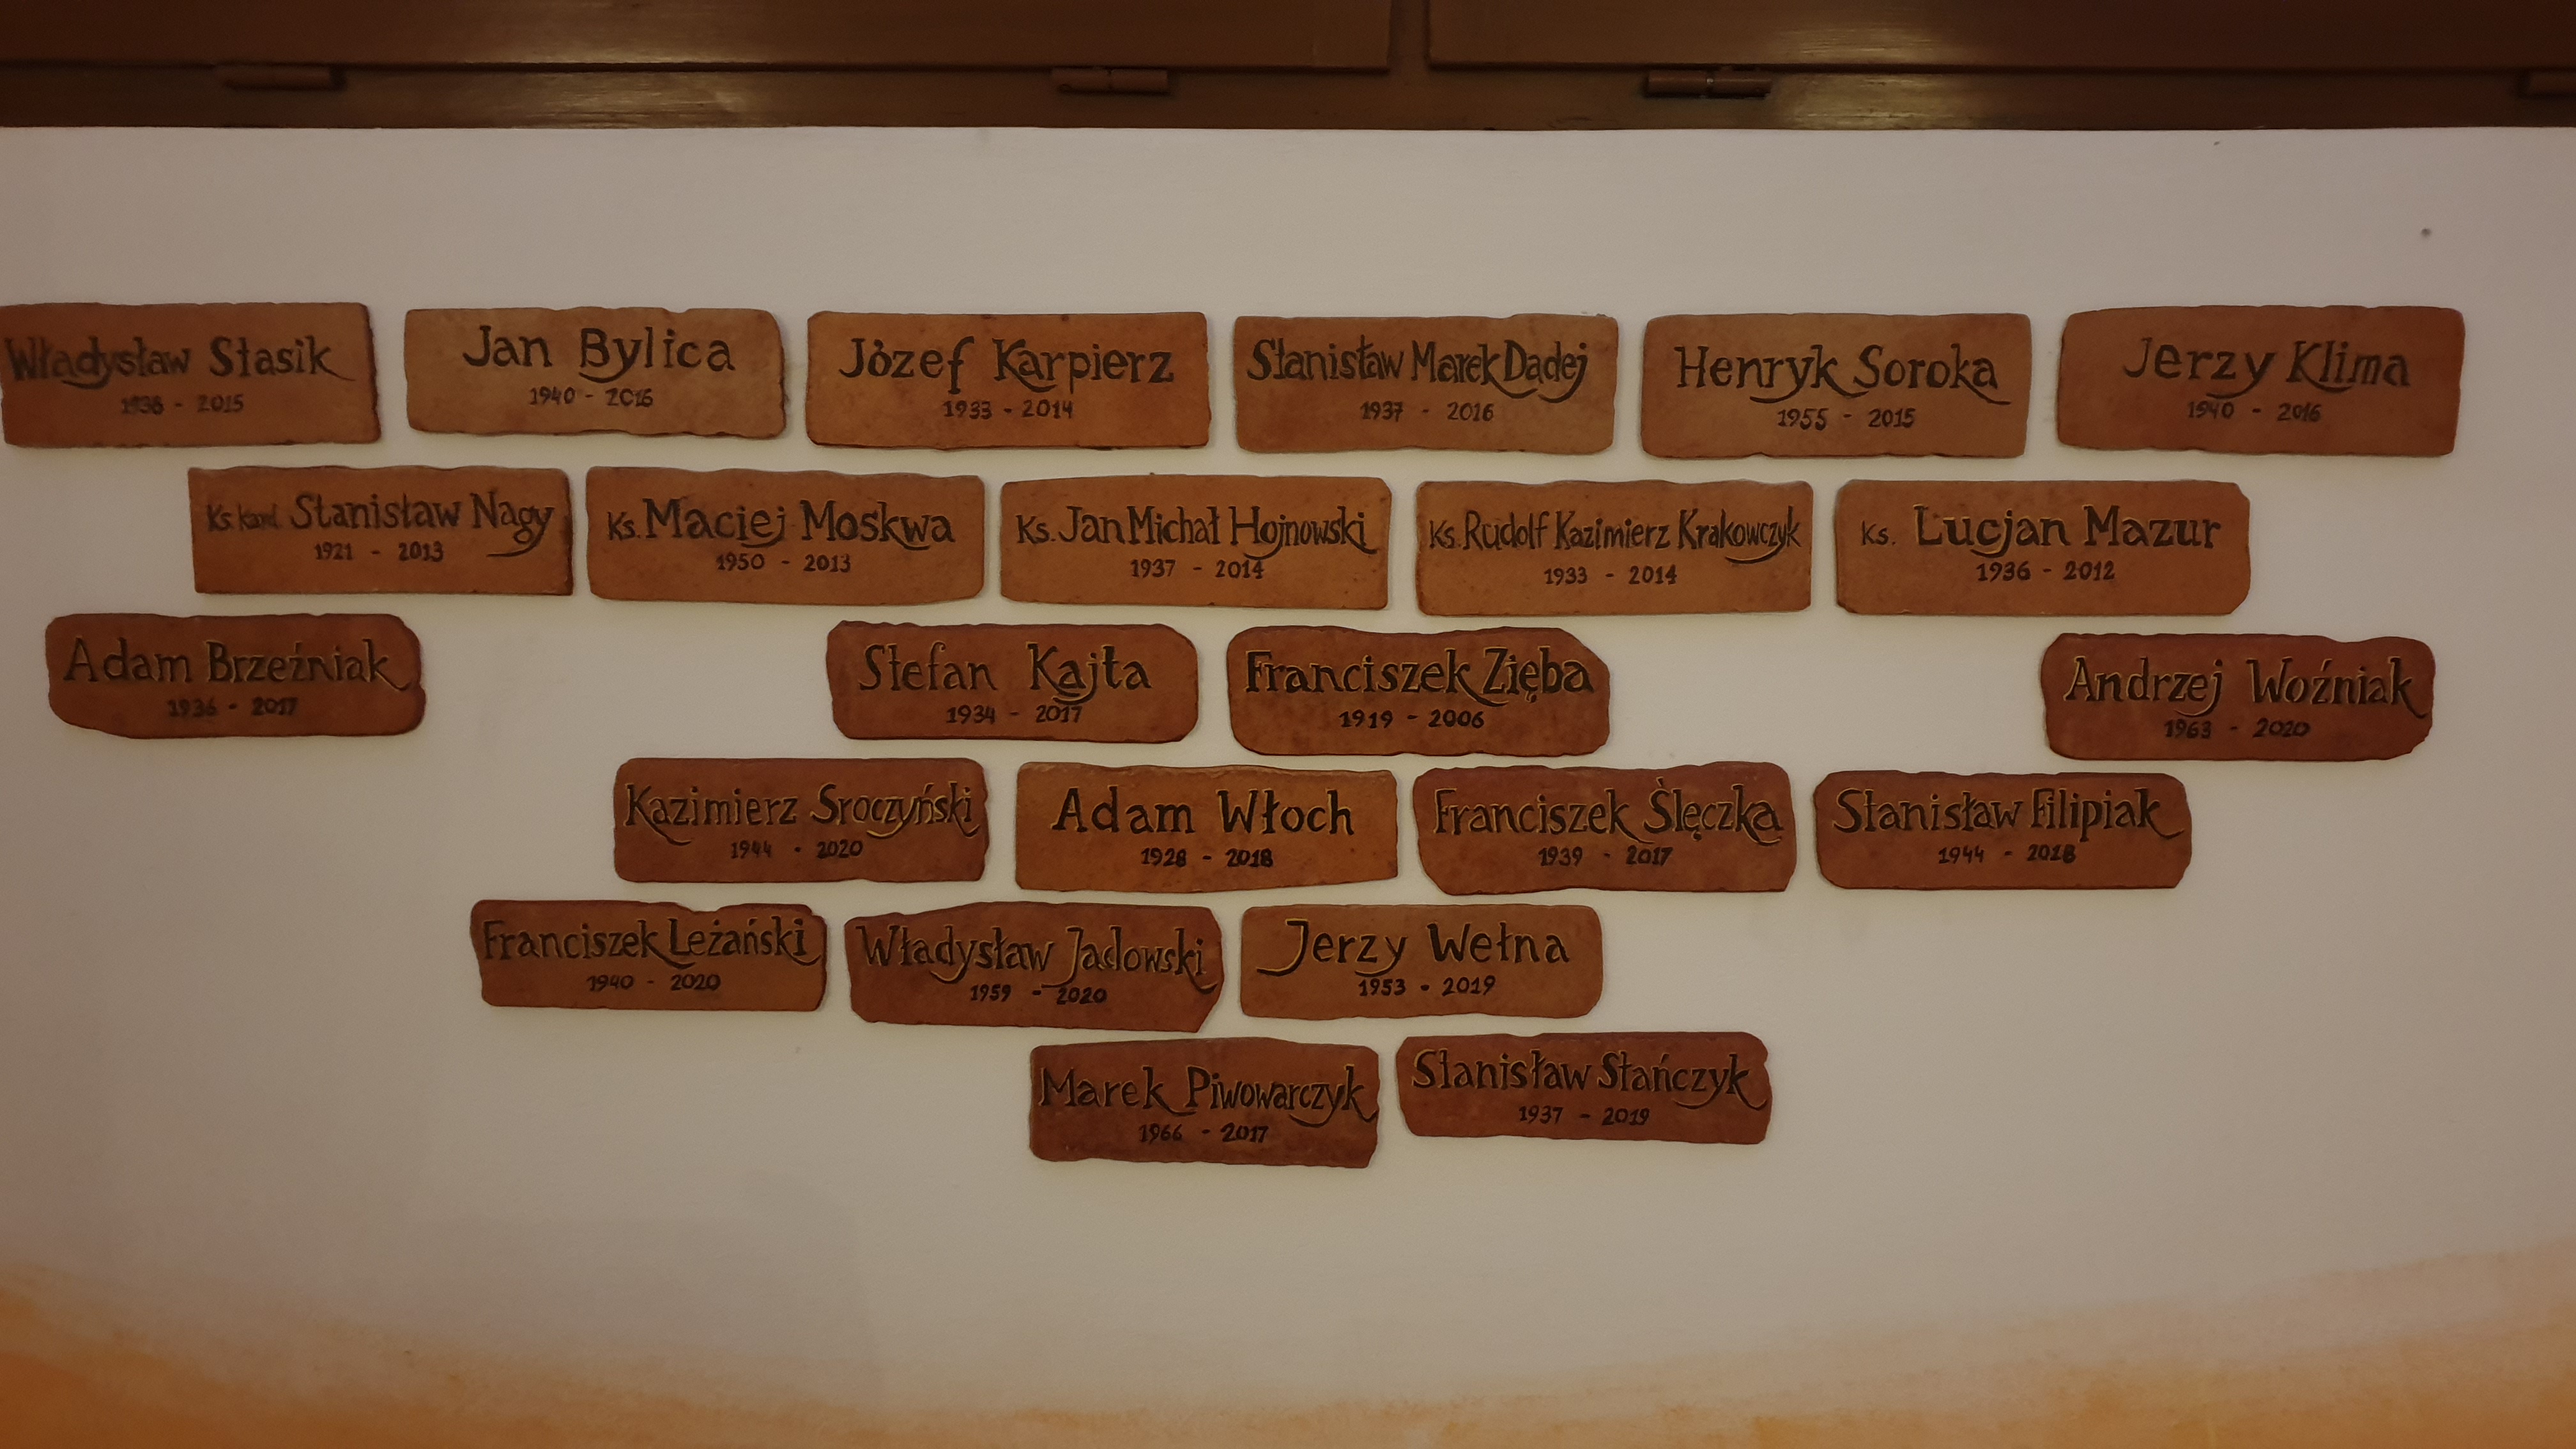 Władysław Stasik
1936 - 2015
Jan Bylica
1940 - 2016
Józef Karpierz
1933 - 2014
Stanisław Marek Dądej
1937 - 2016
Henryk Soroka
1955 - 2015
Jerzy Klima
1940 - 2016
Ks. Kard. Stanisław Nagy
1921 - 2013
Ks. Maciej Moskwa
1950 - 2013
Ks. Jan Michał Hojnowski
1937 - 2014
Ks. Rudolf Kazimierz Krakowczyk
1933 - 2014
Ks. Lucjan Mazur
1936 - 2012
Adam Brzeźniak
1936 - 2017
Stefan Kajta
1934 - 2017
Franciszek Zięba
1919 - 2006
Andrzej Woźniak
1963 - 2020
Kazimierz Sroczyński
1944 - 2020
Adam Włoch
1928 - 2018
Franciszek Ślęczka
1939 - 2017
Stanisław Filipiak
1944 - 2018
Franciszek Leżański
1940 - 2020
Władysław Jadowski
1959 - 2020
Jerzy Wełna
1953 - 2019
Marek Piwowarczyk
1966 - 2017
Stanisław Stańczyk
1937 - 2019